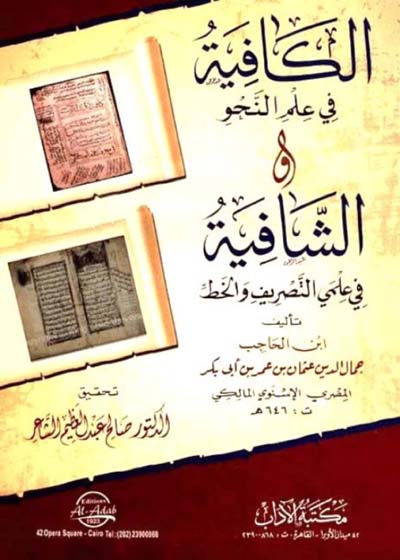 الكافية
في علم النحو
و
الشَّافِيَةُ
في علمي التصريف والخط
تأليف
ابن الحاجب
جمال الدين عثمان بن عمر بن أبي بكر
المصري الإسنوي المالكي
ت: ٦٤٦ هـ
تحقيق
الدكتور صالح عبد العظيم الشاعر
مكتبة الآداب
٤٢ ميدان الأوبرا - القاهرة - ت: ٢٣٩٠٠٨٦٨
Editions
Al-Adab
1923
42 Opera Square - Cairo Tel: (202) 23900868